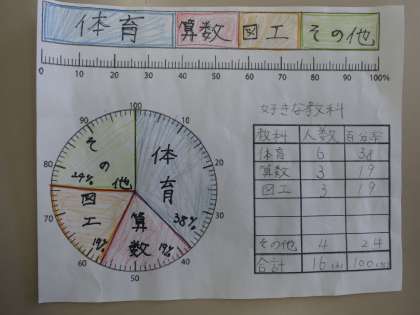 体育 算数 図工 その他
0 10 20 30 40 50 60 70 80 90 100%
100
90 10
80 20
70 30
60 40
50
その他 24%
体育 38%
図工 19%
算数 19%
好きな教科
教科 人数 百分率
体育 6 38
算数 3 19
図工 3 19
その他 4 24
合計 16(人) 100(%)